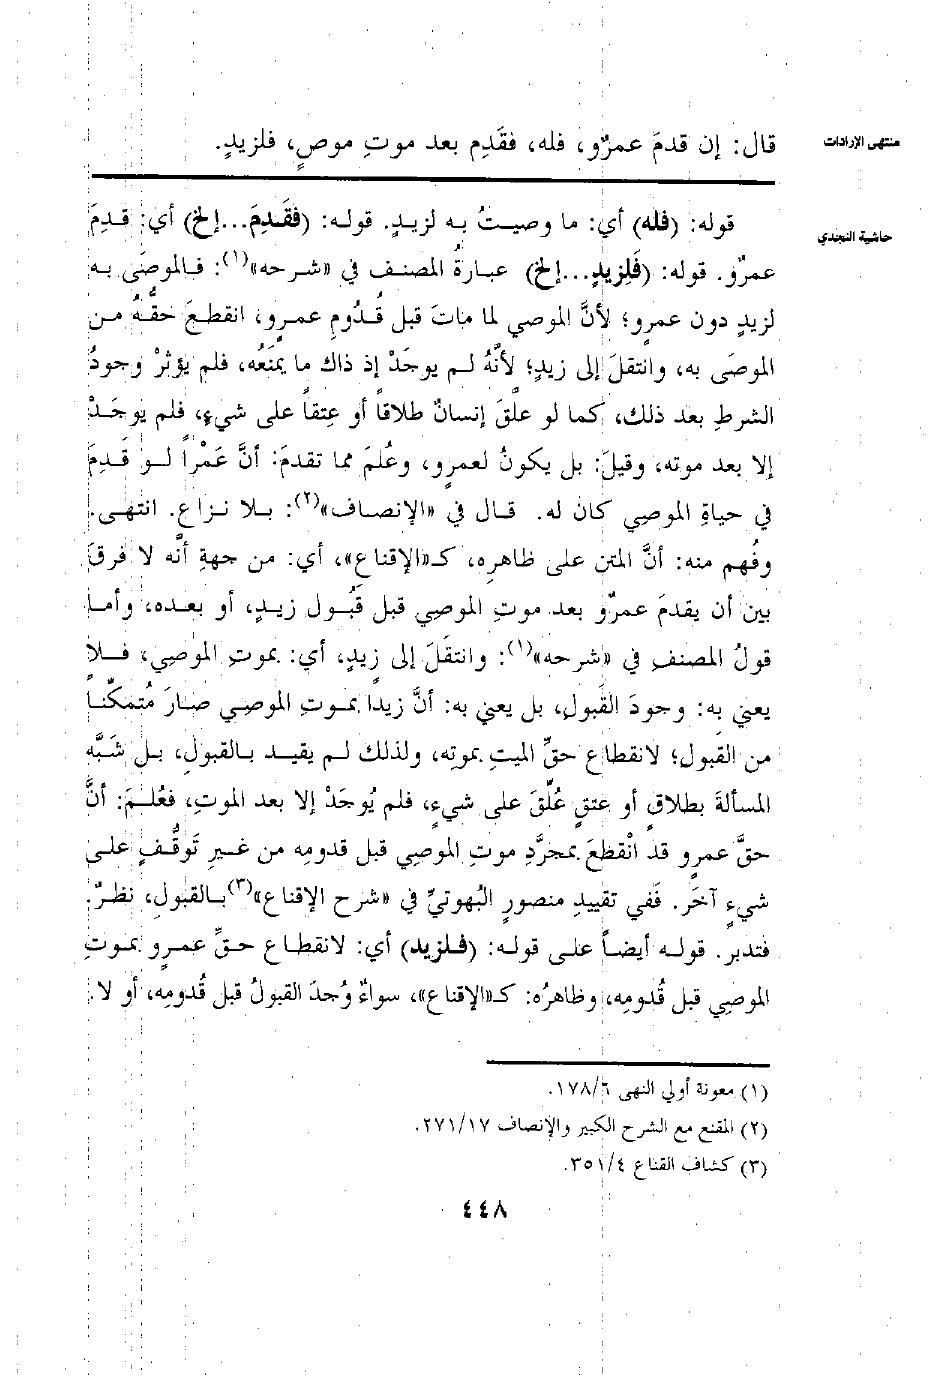 منتهى الإرادات
قال: إن قدمَ عمرٌو، فله، فقَدِم بعد موتِ موصٍ، فلزيدٍ.
حاشية النجدي
قوله: (فله) أي: ما وصيتُ به لزيدٍ. قوله: (فقَدِمَ...إلخ) أي: قدِمَ
عمرٌو. قوله: (فَلِزيدٍ...إلخ) عبارةُ المصنف في «شرحه»(١): فالموصَى به
لزيدٍ دون عمرٍو؛ لأنَّ الموصي لما ماتَ قبل قُدُومِ عمرٍو، انقطعَ حقُّهُ من
الموصَى به، وانتقلَ إلى زيدٍ؛ لأنَّهُ لم يوجَدْ إذ ذاك ما يمنَعُه، فلم يؤثرْ وجودُ
الشرطِ بعد ذلك، كما لو علَّقَ إنسانٌ طلاقاً أو عِتقاً على شيءٍ، فلم يوجَدْ
إلا بعد موته، وقيلَ: بل يكونُ لعمرٍو، وعُلمَ مما تقدمَ: أنَّ عَمْراً لو قَدِمَ
في حياةِ الموصِي كان له. قال في «الإنصاف»(٢): بلا نزاع. انتهى.
وفُهم منه: أنَّ المتن على ظاهرِه، كـ«الإقناع»، أي: من جهةِ أنَّه لا فرقَ
بين أن يقدمَ عمرٌو بعد موتِ الموصِي قبل قَبُول زيدٍ، أو بعده، وأما
قولُ المصنفِ في «شرحه»(١): وانتقَلَ إلى زيدٍ، أي: بموتِ الموصِي، فلا
يعني به: وجودَ القَبولِ، بل يعني به: أنَّ زيداً بموتِ الموصِي صارَ مُتمكِّناً
من القبولِ؛ لانقطاعِ حقِّ الميتِ بموتِه، ولذلك لم يقيد بالقبولِ، بل شَبَّه
المسألةَ بطلاقٍ أو عتقٍ عُلِّقَ على شيءٍ، فلم يُوجَدْ إلا بعد الموتِ، فعُلمَ: أنَّ
حقَّ عمرٍو قد انْقطعَ بمجرَّدِ موتِ الموصِي قبل قدومِه من غيرِ تَوقُّفٍ على
شيءٍ آخَر. فَفي تقييدِ منصورٍ البُهوتيِّ في «شرح الإقناع»(٣) بالقبولِ، نظرٌ.
فتدبر. قوله أيضاً على قوله: (فلزيد) أي: لانقطاعِ حقِّ عمرٍو بموتِ
الموصِي قبل قُدومِه، وظاهرُه: كـ«الإقناع»، سواءٌ وُجدَ القبولُ قبل قُدومِه، أو لا.
(١) معونة أولي النهى ١٧٨/٦.
(٢) المقنع مع الشرح الكبير والإنصاف ٢٧١/١٧.
(٣) كشاف القناع ٣٥١/٤.
٤٤٨